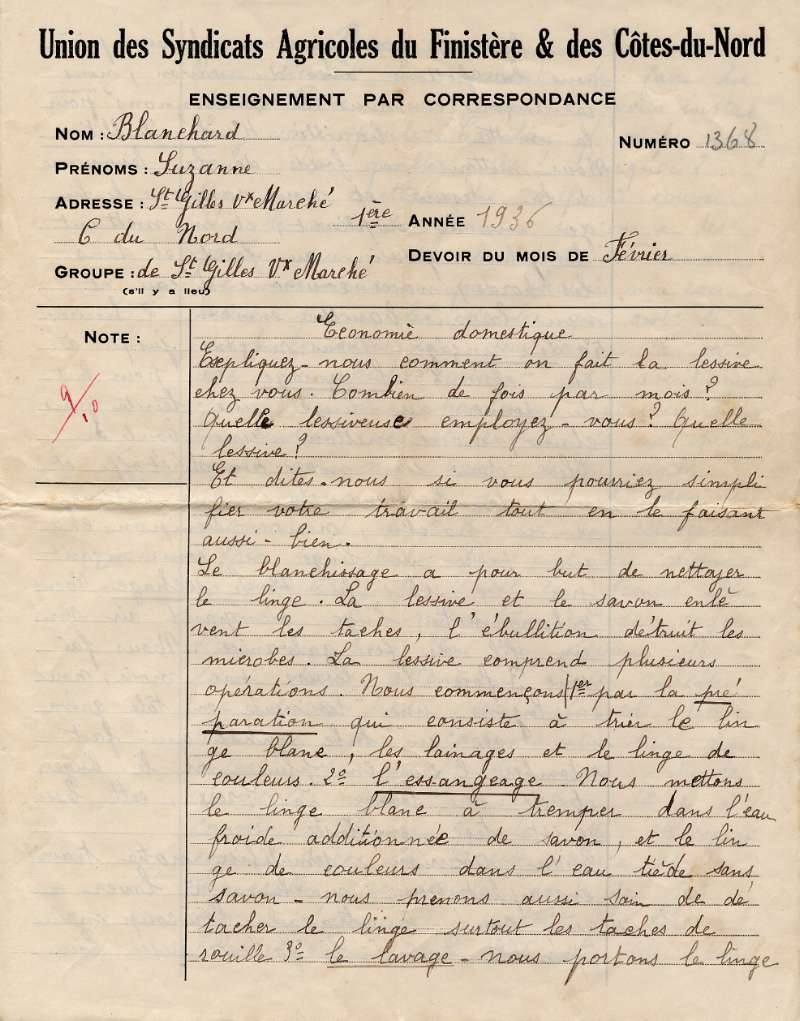 Union des Syndicats Agricoles du Finistère & des Côtes-du-Nord
ENSEIGNEMENT PAR CORRESPONDANCE
NOM : Blanchard
NUMÉRO 1368
PRÉNOMS : Suzanne
ADRESSE : St Gilles Vx Marché
C du Nord
1ère ANNÉE 1936
DEVOIR DU MOIS DE Février
GROUPE : de St Gilles Vx Marché
(s'il y a lieu)
NOTE :
9/10
Economie domestique
Expliquez-nous comment on fait la lessive
chez vous. Combien de fois par mois ?
Quelle lessiveuse employez-vous ? Quelle
lessive ?
Et dites-nous si vous pourriez simpli
fier votre travail tout en le faisant
aussi-bien.
Le blanchissage a pour but de nettoyer
le linge. La lessive et le savon enlè
vent les taches, l'ébullition détruit les
microbes. La lessive comprend plusieurs
opérations. Nous commençons 1er par la pré
paration qui consiste à trier le lin
ge blanc, les lainages et le linge de
couleurs. 2º l'essangeage. Nous mettons
le linge blanc à tremper dans l'eau
froide additionnée de savon, et le lin
ge de couleurs dans l'eau tiède sans
savon - nous prenons aussi soin de dé
tacher le linge surtout les taches de
rouille 3º le lavage - nous portons le linge